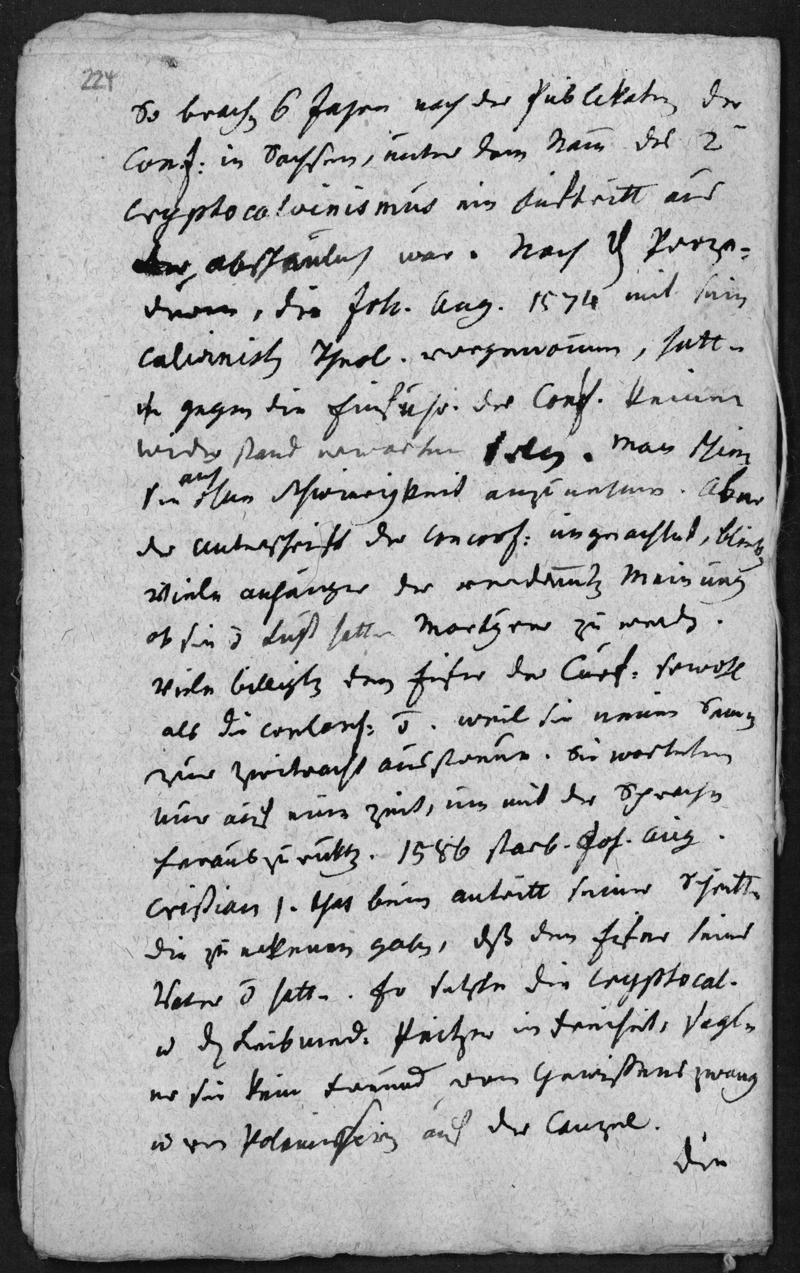 224
So brach 6 Jahre nach der Publikation der
Conf: in Sachsen, unter dem Nam des 2
Cryptocalvinismus ein Auftritt aus
abscheulich war. Nach den Proze=
duren, die Joh. Aug. 1574 mit sein
calvinisch Theol. vorgenommen, hatt
gegen die Einführ. der Conf. keinen
Widerstand erwarten solen. Man schien
sie auch ohne Schwierigkeit anzunehmen. Aber
der Unterschrift der Concorf: ungeachtet, blieb
viele anhänger der verdammt Meinung
ob sie Lust hatten Martyrer zu werd.
Viele billigt den Eifer der Curf: sowohl
als die weil sie neuen Samen
zur Zwietracht ausstreue. Sie warteten
nur auf eine Zeit, um mit der Sprache
herauszurükk. 1586 starb Joh. Aug.
Cristian I. that beim antritt seiner Schritte
die zu erkennen gaben, dß den Eifer seines
Vater hatte. Er setzte die Cryptocal.
u d Leibmed. Peitzer in Freiheit, sagte
er sei kein Freund vom Gewissenszwang
u von Polemisiren auf der Canzel.
Die